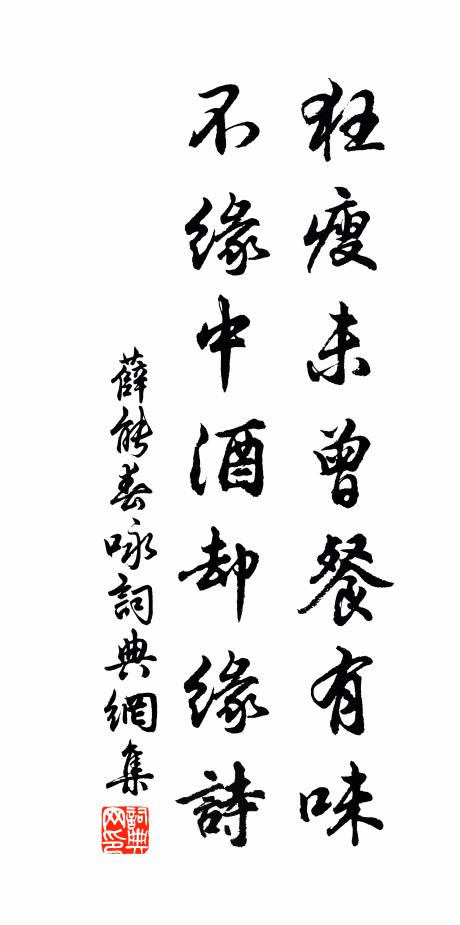 狂瘦未曾餐有味
不緣中酒却緣詩
薛能春咏詞典網集
詞典网印